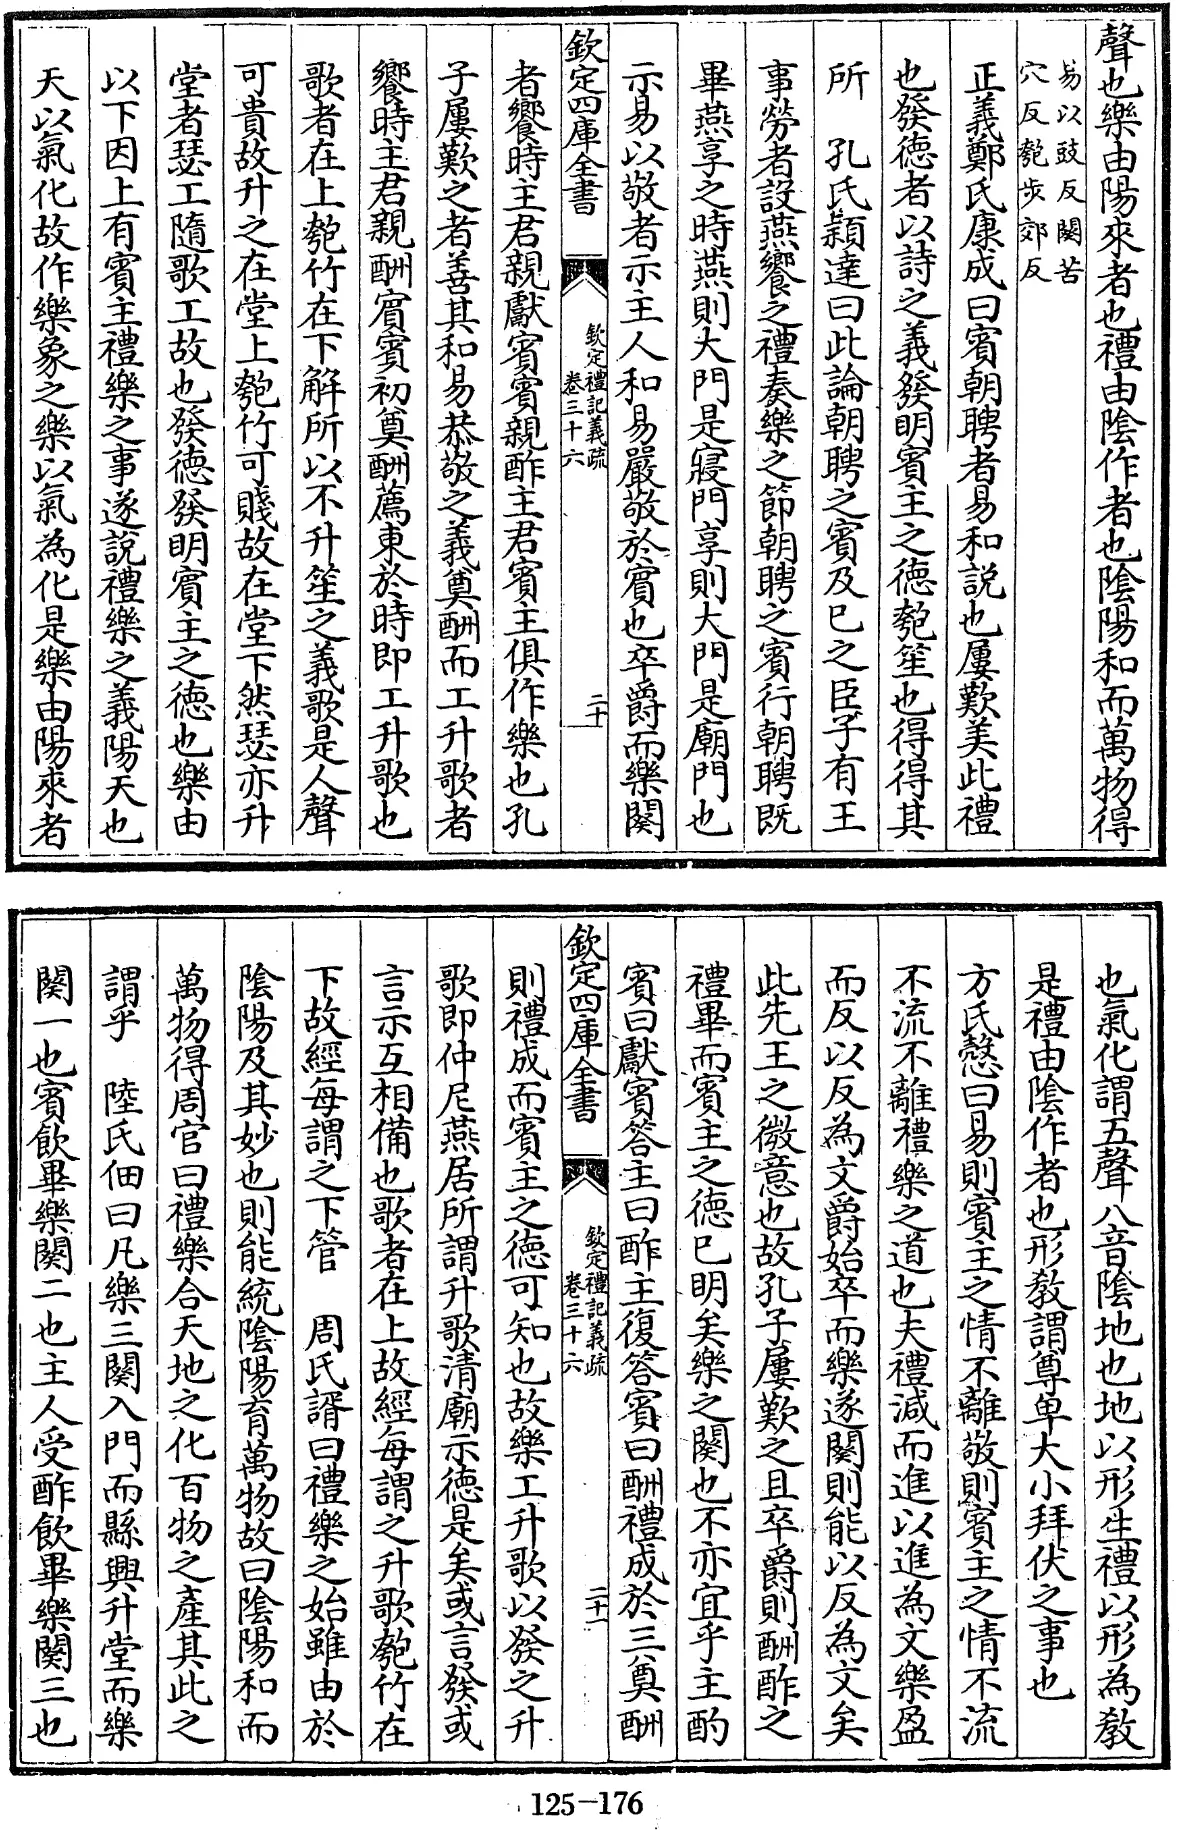 聲也樂由陽來者也禮由陰作者也陰陽和而萬物得
易以豉反闋苦
穴反匏步郊反
正義鄭氏康成曰賓朝聘者易和說也屢歎美此禮
也發德者以詩之義發明賓主之德匏笙也得得其
所　孔氏穎達曰此論朝聘之賓及已之臣子有王
事勞者設燕饗之禮奏樂之節朝聘之賓行朝聘既
畢燕享之時燕則大門是寢門享則大門是廟門也
示易以敬者示主人和易嚴敬於賓也卒爵而樂闋
欽定四庫全書
欽定禮記義疏
卷三十六
二十
者饗時主君親獻賓賓親酢主君賓主俱作樂也孔
子屢歎之者善其和易恭敬之義奠酬而工升歌者
饗時主君親酬賓賓初奠酬薦東於時即工升歌也
歌者在上匏竹在下解所以不升笙之義歌是人聲
可貴故升之在堂上匏竹可賤故在堂下然瑟亦升
堂者瑟工隨歌工故也發德發明賓主之德也樂由
以下因上有賓主禮樂之事遂說禮樂之義陽天也
天以氣化故作樂象之樂以氣為化是樂由陽來者
也氣化謂五聲八音陰地也地以形生禮以形為教
是禮由陰作者也形教謂尊卑大小拜伏之事也
方氏慤曰易則賓主之情不離敬則賓主之情不流
不流不離禮樂之道也夫禮減而進以進為文樂盈
而反以反為文爵始卒而樂遂闋則能以反為文矣
此先王之微意也故孔子屢歎之且卒爵則酬酢之
禮畢而賓主之德已明矣樂之闋也不亦宜乎主酌
賓曰獻賓答主曰酢主復答賓曰酬禮成於三奠酬
欽定四庫全書
欽定禮記義疏
卷三十六
二十一
則禮成而賓主之德可知也故樂工升歌以發之升
歌即仲尼燕居所謂升歌清廟示德是矣或言發或
言示互相備也歌者在上故經每謂之升歌匏竹在
下故經每謂之下管　周氏諝曰禮樂之始雖由於
陰陽及其妙也則能統陰陽育萬物故曰陰陽和而
萬物得周官曰禮樂合天地之化百物之產其此之
謂乎　陸氏佃曰凡樂三闋入門而縣興升堂而樂
闋一也賓飲畢樂闋二也主人受酢飲畢樂闋三也
125-176